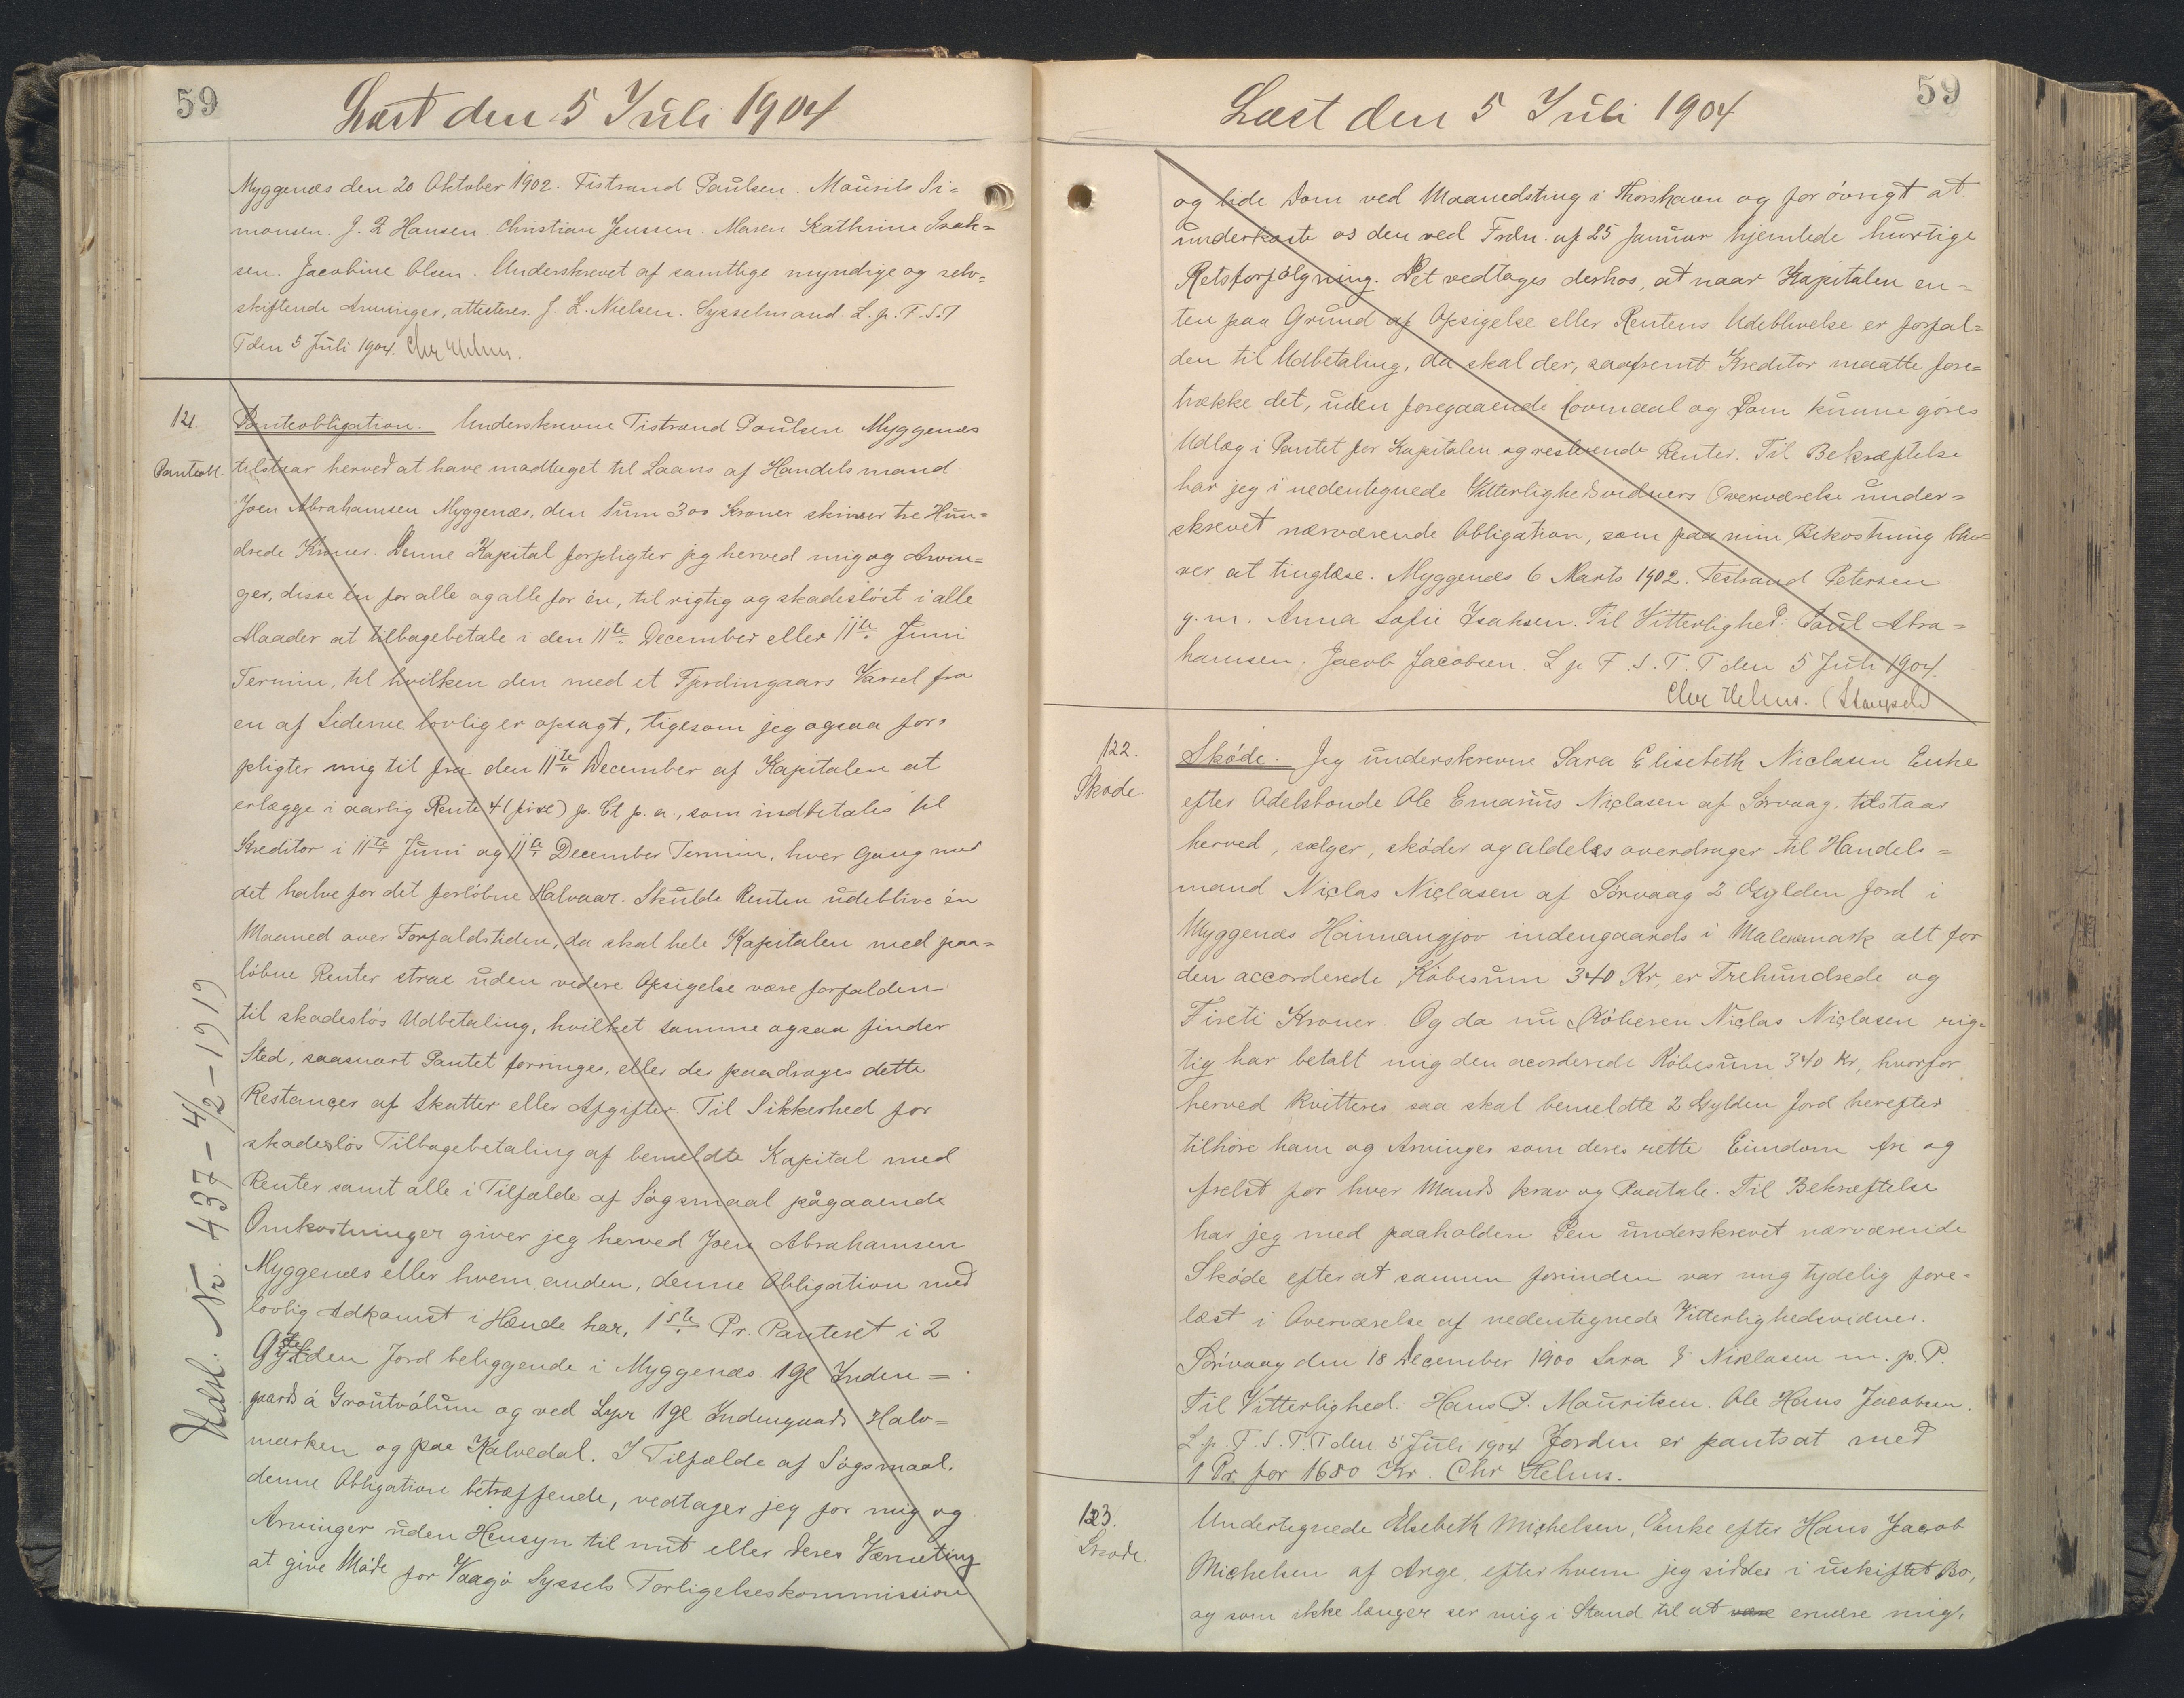 59
Læst den 5 Juli 1904
Myggenæs den 20 Oktober 1902. Tistrand Poulsen. Maurits Si=
monsen. J. R Hansen. Christian Jenssen. Maren Kathrine Isak=
sen. Jacobine Olsen. Underskrevet af samtlige myndige og selv=
skiftende Arvinger, attesteres. J. L. Nielsen. Sysselmand. L. p. F. S. T
T den 5 Juli 1904. Chr Helms.
121.
Panteobl.
Panteobligation. Underskrevne Tistrand Poulsen Myggenæs
tilstaar herved at have modtaget til Laans af Handelsmand
Joen Abrahamsen Myggenæs, den Sum 300 Kroner skriver tre Hun=
drede Kroner. Denne Kapital forpligter jeg herved mig og Arvin=
ger, disse én for alle og alle for én, til rigtig og skadesløst i alle
Maader at tilbagebetale i den 11te December eller 11te Juni
Termin, til hvilken den med et Fjerdingaars Varsel fra
en af Siderne lovlig er opsagt, ligesom jeg ogsaa for=
pligter mig til fra den 11te December af Kapitalen at
erlægge i aarlig Rente 4 (fire) p. Ct p. a., som indbetales til
Kreditor i 11te Juni og 11te December Termin, hver Gang med
det halve for det forløbne Halvaar. Skulde Renten udeblive én
Maaned over Forfaldstiden, da skal hele Kapitalen med paa=
løbne Renter strax uden videre Opsigelse være forfalden
til skadesløs Udbetaling, hvilket samme ogsaa finder
Sted, saasnart Pantet forringes, eller der paadrages dette
Restancer af Skatter eller Afgifter. Til Sikkerhed for
skadesløs Tilbagebetaling af bemeldte Kapital med
Renter samt alle i Tilfælde af Søgsmaal pågaaende
Omkostninger giver jeg herved Joen Abrahamsen
Myggenæs eller hvem anden, denne Obligation med
lovlig Adkomst i Hænde har, 1ste Pr. Panteret i 2
Gylden Jord beliggende i Myggenæs 1 gl Inden=
gaards á Groutvólum og ved Lyer 1 gl Indengaards Halv=
marken og paa Kalvedal. I Tilfælde af Søgsmaal,
denne Obligation betræffende, vedtager jeg for mig og
Arvinger uden Hensyn til mit eller deres Værneting
at give Møde for Vaagø Syssels Forligelseskommission
Udsl. Nr. 437 - 4/2 - 1919
59
Læst den 5 Juli 1904
og lide Dom ved Maanedsting i Thorshavn og for øvrigt at
underkaste os den ved Frdn. af 25 Januar hjemlede hurtige
Retsforfølgning. Det vedtages derhos, at naar Kapitalen en=
ten paa Grund af Opsigelse eller Rentens Udeblivelse er forfal=
den til Udbetaling, da skal der, saafremt Kreditor maatte fore=
trække det, uden foregaaende Lovmaal og Dom kunne gøres
Udlæg i Pantet for Kapitalen og resterende Renter. Til Bekræftelse
har jeg i nedentegnede Vitterlighedsvidners Overværelse under=
skrevet nærværende Obligation, som paa min Bekostning bli=
ver at tinglæse. Myggenæs 6 Marts 1902. Testrand Petersen
g. m. Anna Sofie Isaksen. Til Vitterlighed: Poul Abra=
hamsen, Jacob Jacobsen. L p F. S. T. T den 5 Juli 1904.
Chr Helms. (Stempel)
122.
Skøde.
Skøde. Jeg underskrevne Sara Elisebeth Niclasen Enke
efter Odelsbonde Ole Emanus Niclasen af Sørvaag, tilstaar
herved, sælger, skøder og aldeles overdrager til Handels=
mand Niclas Niclasen af Sørvaag 2 Gylden Jord i
Myggenæs Haimangjov indengaards i Malenamark alt for
den accorderede Købesum 340 Kr, er Trehundrede og
Fireti Kroner. Og da nu Køberen Niclas Niclasen rig=
tig har betalt mig den acorderede Købesum 340 Kr, hvorfor
herved kvitteres saa skal bemeldte 2 Gylden Jord herefter
tilhøre ham og Arvinger som deres rette Eiendom fri og
frelst for hver Mands krav og Paatale. Til Bekræftelse
har jeg med paaholden Pen underskrevet nærværende
Skøde efter at samme forinden var mig tydelig fore=
læst i Overværelse af nedentegnede Vitterlighedsvidner.
Sørvaag den 18 December 1900 Sara E Niclasen m. p. P.
Til Vitterlighed: Hans P. Mauritsen. Ole Hans Jacobsen.
L. p. F. S. T. T den 5 Juli 1904 Jorden er pantsat med
1 Pr for 1680 Kr. Chr Helms.
123.
Skøde.
Undertegnede Elsebeth Michelsen, Enke efter Hans Jacob
Michelsen af Arge, efter hvem jeg sidder i uskiftet Bo,
og som ikke længer ser mig i Stand til at være ernære mig,